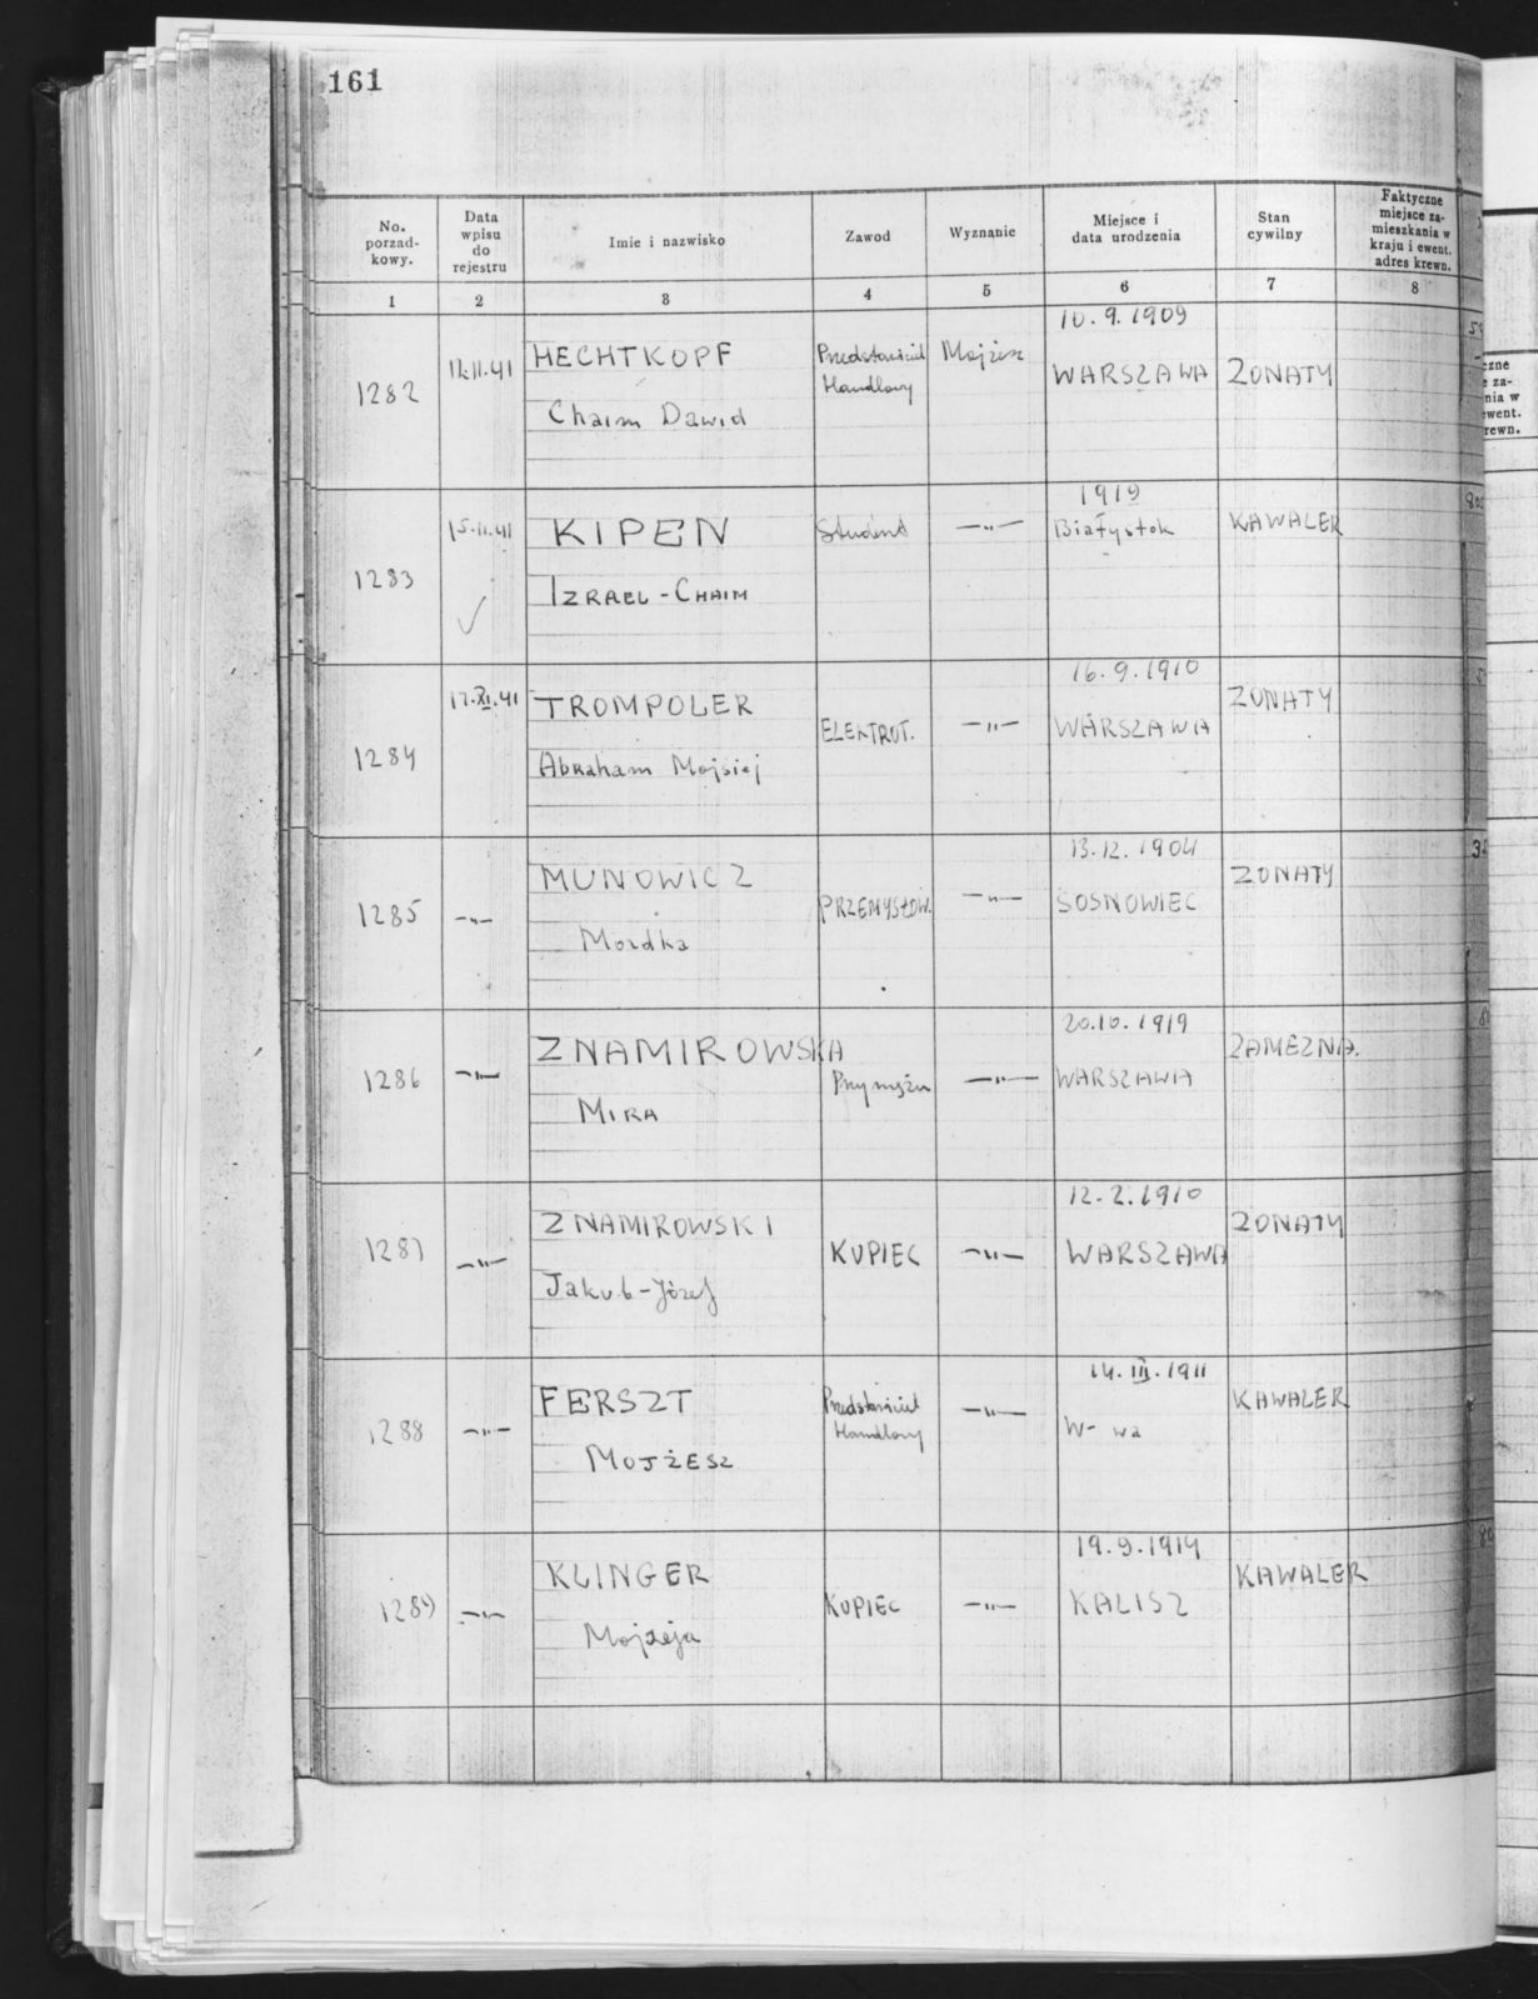 161
No. porzad- kowy.
Data wpisu do rejestru
Imie i nazwisko
Zawod
Wyznanie
Miejsce i data urodzenia
Stan cywilny
Faktyczne miejsce za- mieszkania w kraju i ewent. adres krewn.
1 2 3 4 5 6 7 8
10.9.1909
1282 HECHTKOPF Przedstawiciel Mojżesz WARSZAWA ZONATY
Handlowy
Chaim Dawid
1919
1283 15.11.41 KIPEN Student —"— Białystok KAWALER
IZRAEL-CHAIM
16.9.1910
1284 17.XI.41 TROMPOLER ELEKTROT. —"— WARSZAWA ZONATY
Abraham Mojsiej
13.12.1904
1285 —"— MUNOWICZ PRZEMYSŁOW. —"— SOSNOWIEC ZONATY
Mordka
20.10.1919
1286 —"— ZNAMIROWSKA Przy mężu —"— WARSZAWA ZAMEZNA.
MIRA
12.2.1910
1287 —"— ZNAMIROWSKI KUPIEC —"— WARSZAWA ZONATY
Jakub-Józef
14.III.1911
1288 —"— FERSZT Przedstawiciel —"— W-wa KAWALER
Handlowy
MOJŻESZ
19.9.1914
1289 —"— KLINGER KUPIEC —"— KALISZ KAWALER
zne
za-
nia w
ewent.
rewn.